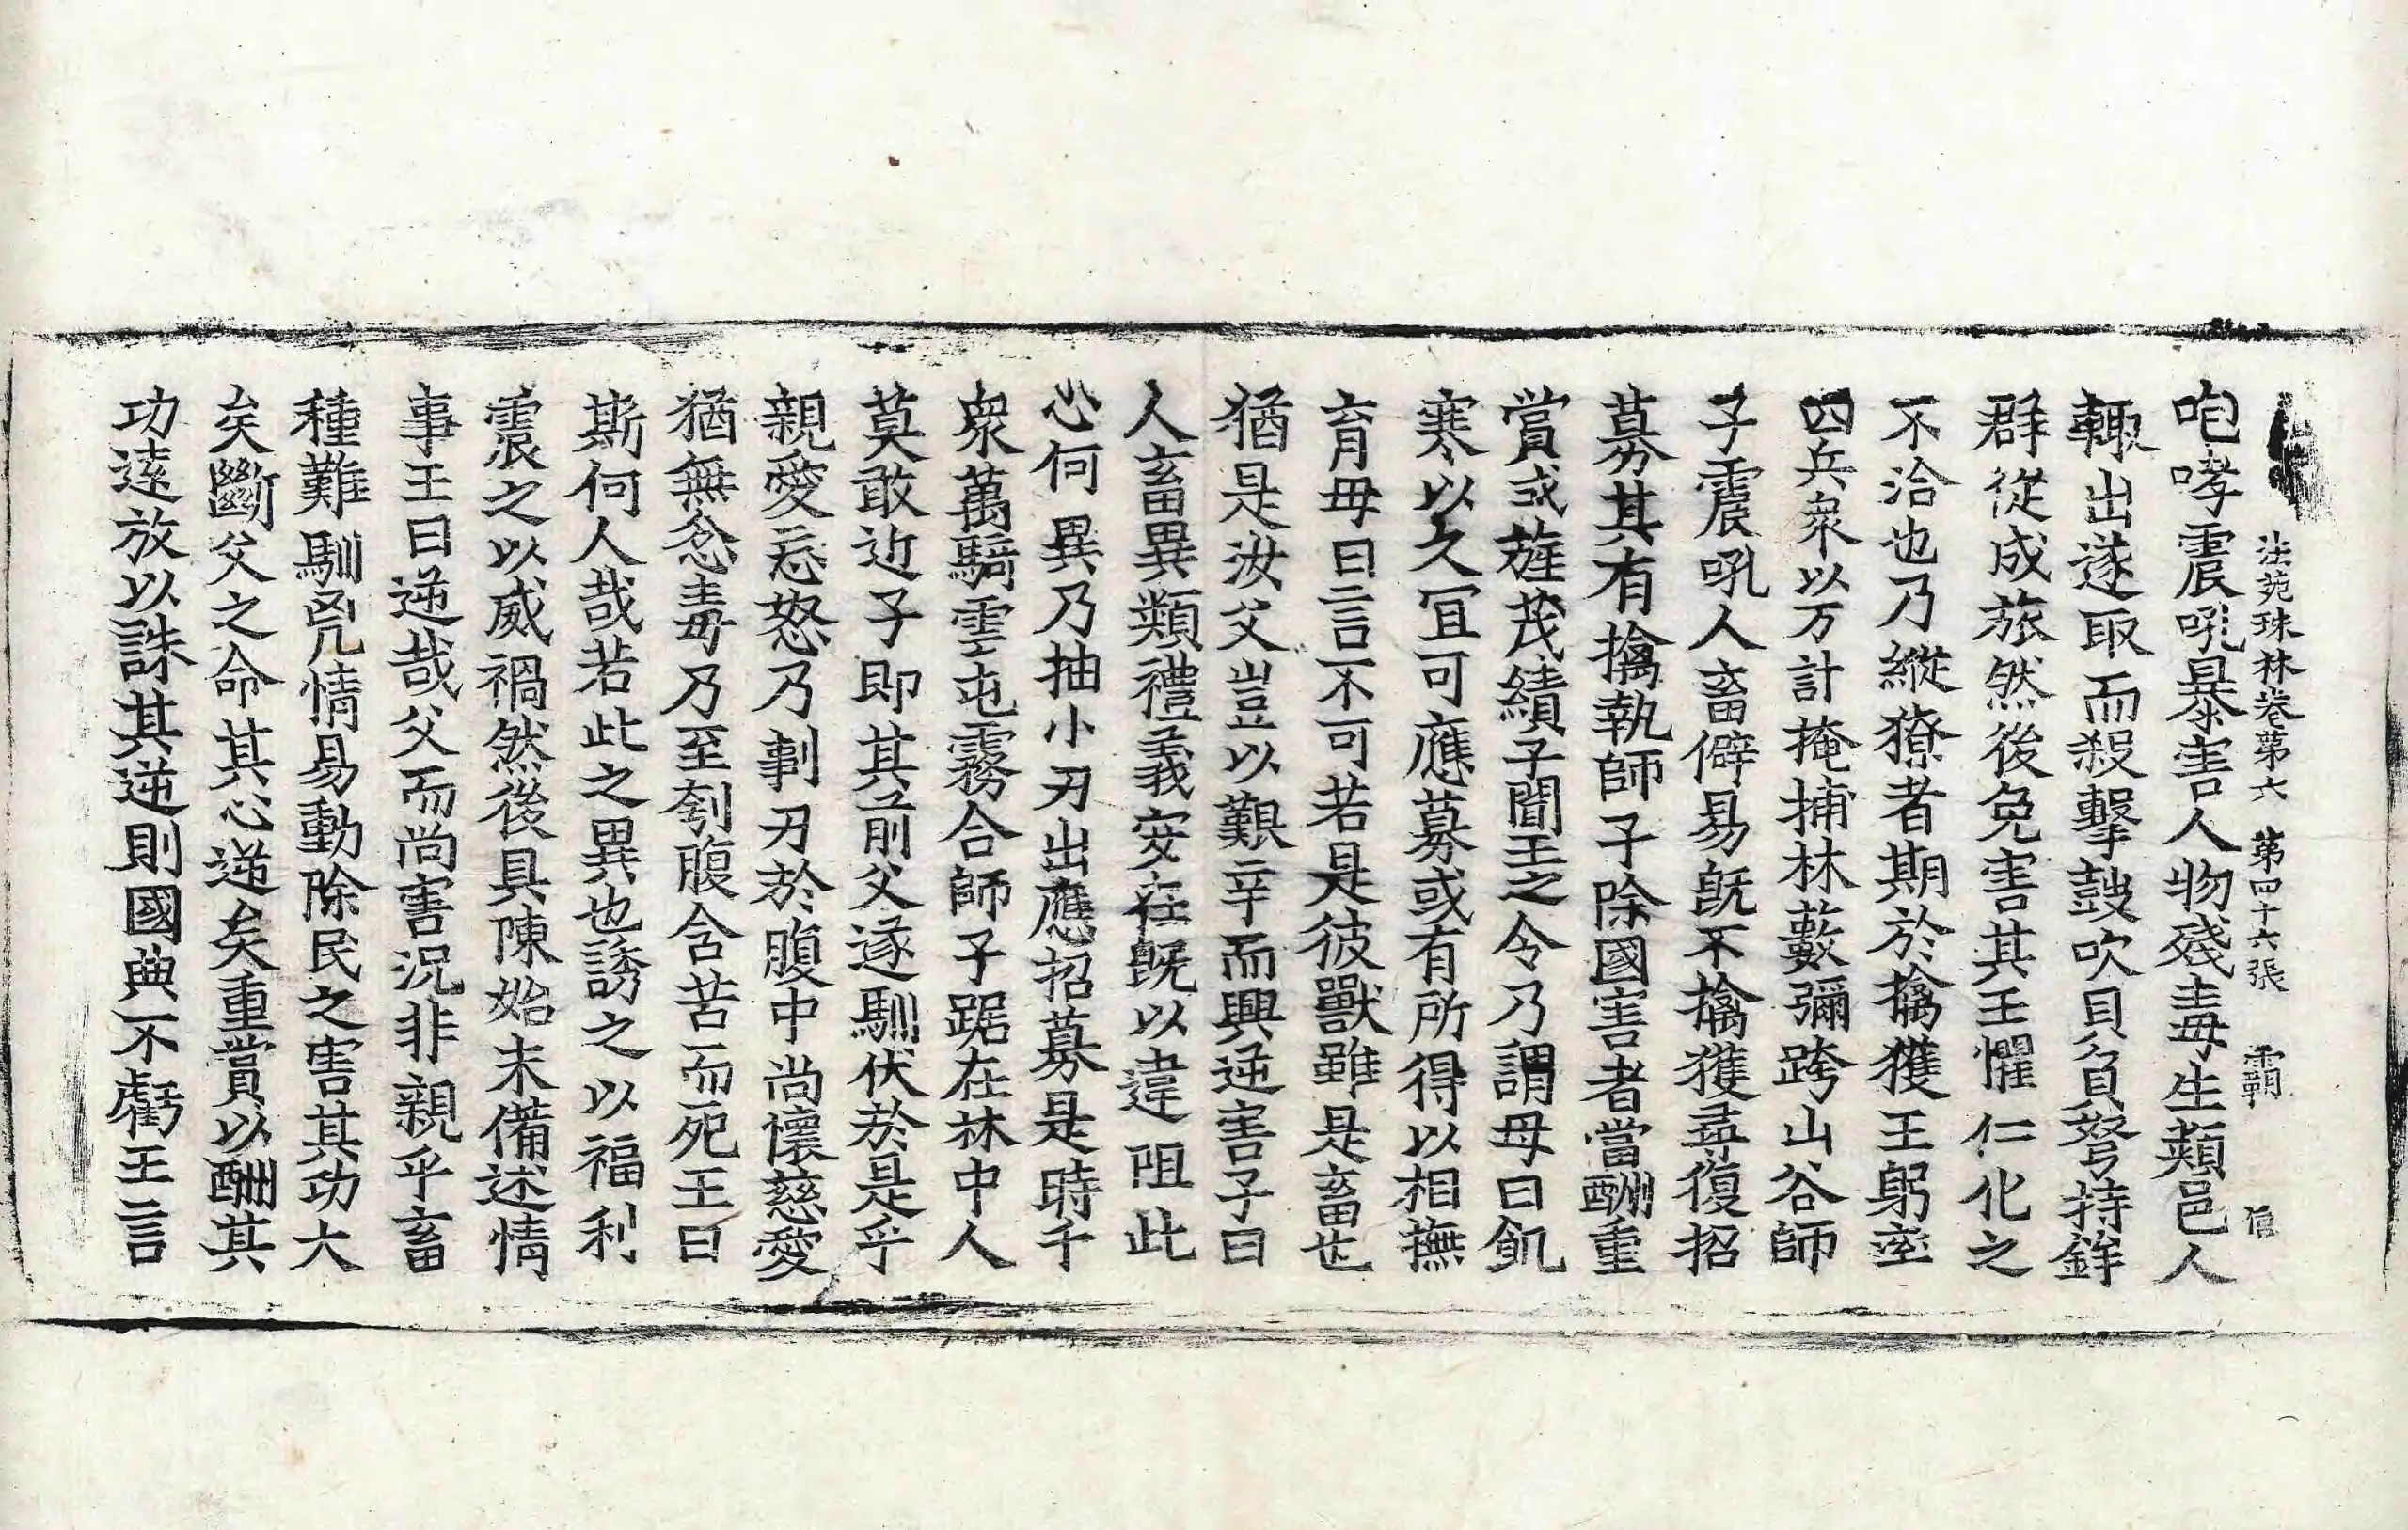 法苑珠林卷第六 第四十六張 霸 信
咆哮震吼暴害人物殘毒生類邑人
輙出遂取而殺擊鼓吹貝負弩持鉾
群從成旅然後免害其王懼仁化之
不洽也乃縱獠者期於擒獲王躬率
四兵衆以万計掩捕林藪彌跨山谷師
子震吼人畜僻易旣不擒獲尋復招
募其有擒執師子除國害者當酬重
賞或旌茂績子聞王之令乃謂母曰飢
寒以久冝可應募或有所得以相撫
育母曰言不可若是彼獸雖是畜也
猶是汝父豈以艱辛而興逆害子曰
人畜異類禮義安在旣以違阻此
心何異乃抽小刃出應招募是時千
衆萬騎雲屯霧合師子踞在林中人
莫敢近子即其前父遂馴伏於是乎
親愛忘怒乃剚刃於腹中尚懷慈愛
猶無忿毒乃至刳腹含苦而死王曰
斯何人哉若此之異也誘之以福利
震之以威禍然後具陳始末備述情
事王曰逆哉父而尚害況非親乎畜
種難馴兇情易動除民之害其功大
矣斷父之命其心逆矣重賞以酬其
功遠放以誅其逆則國典不虧王言